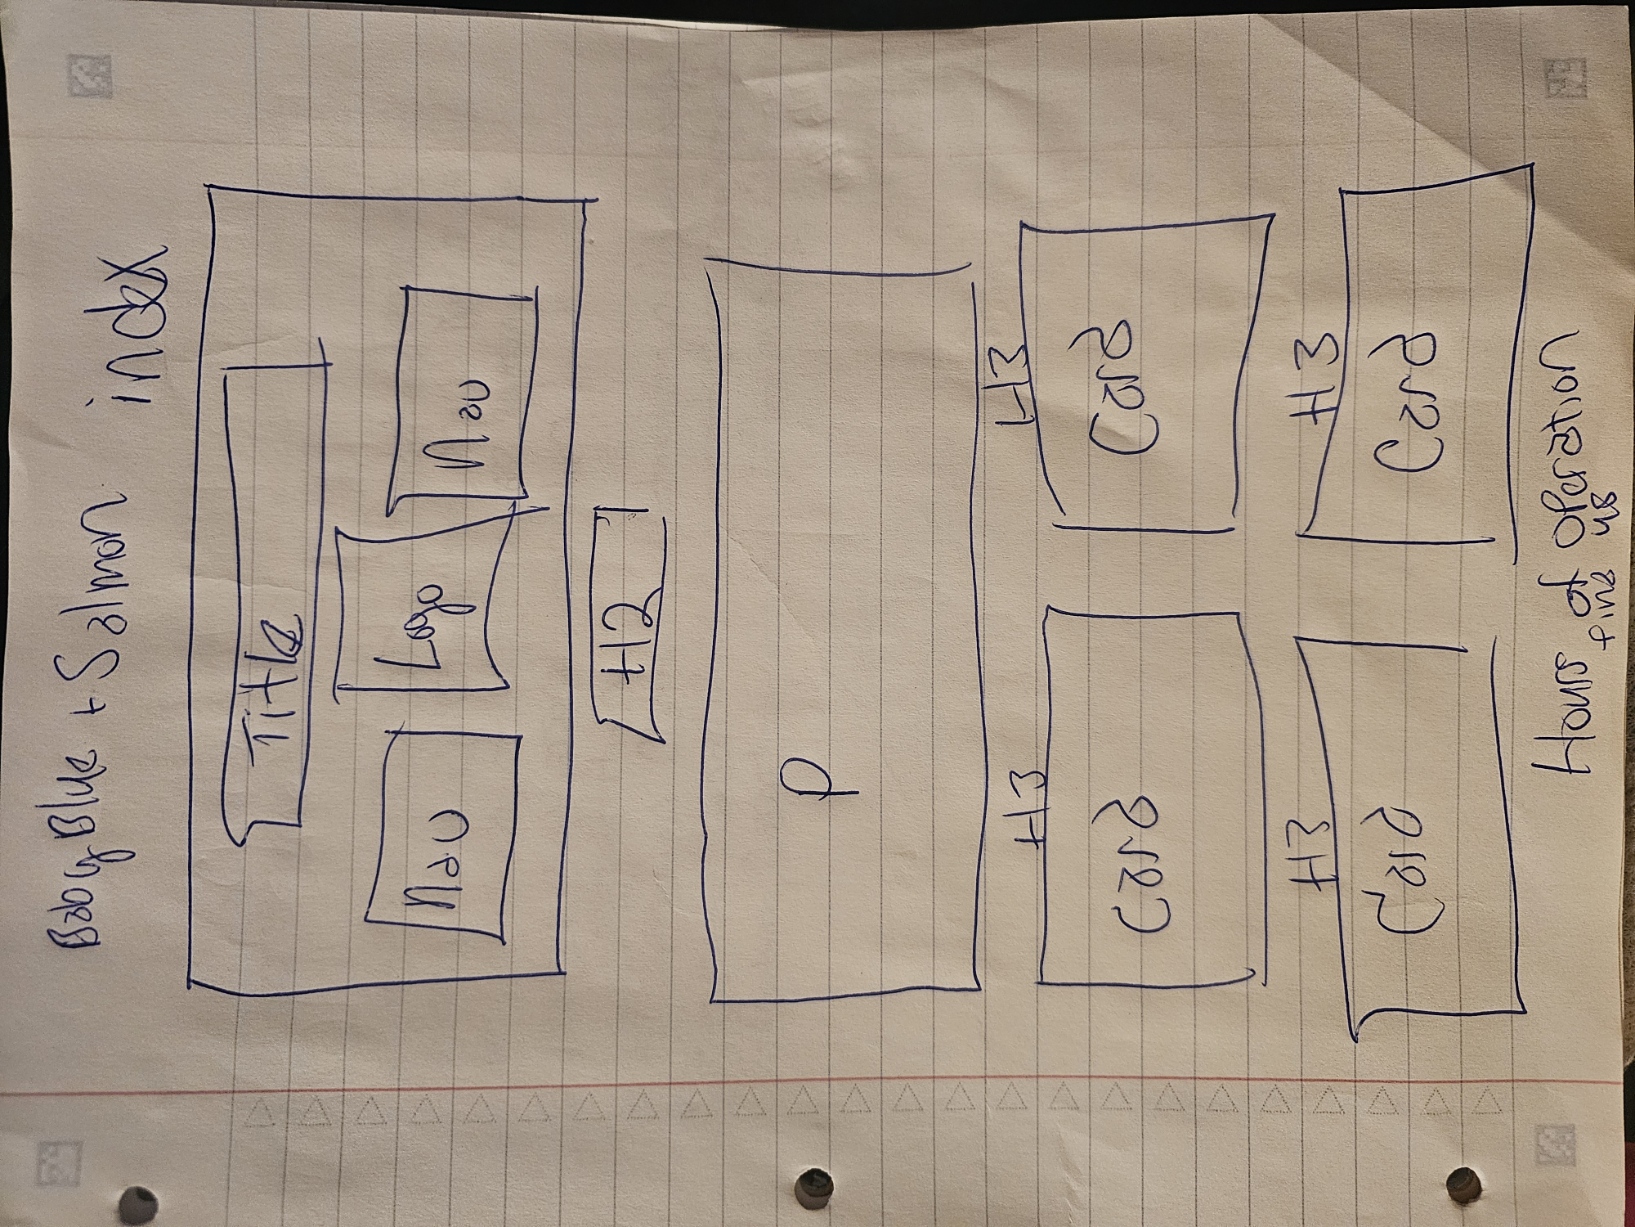 Baby Blue + Salmon index
Title
Nav Logo Nav
H2
P
H3 H3
Card Card
H3 H3
Card Card
Hours of Operation
find us